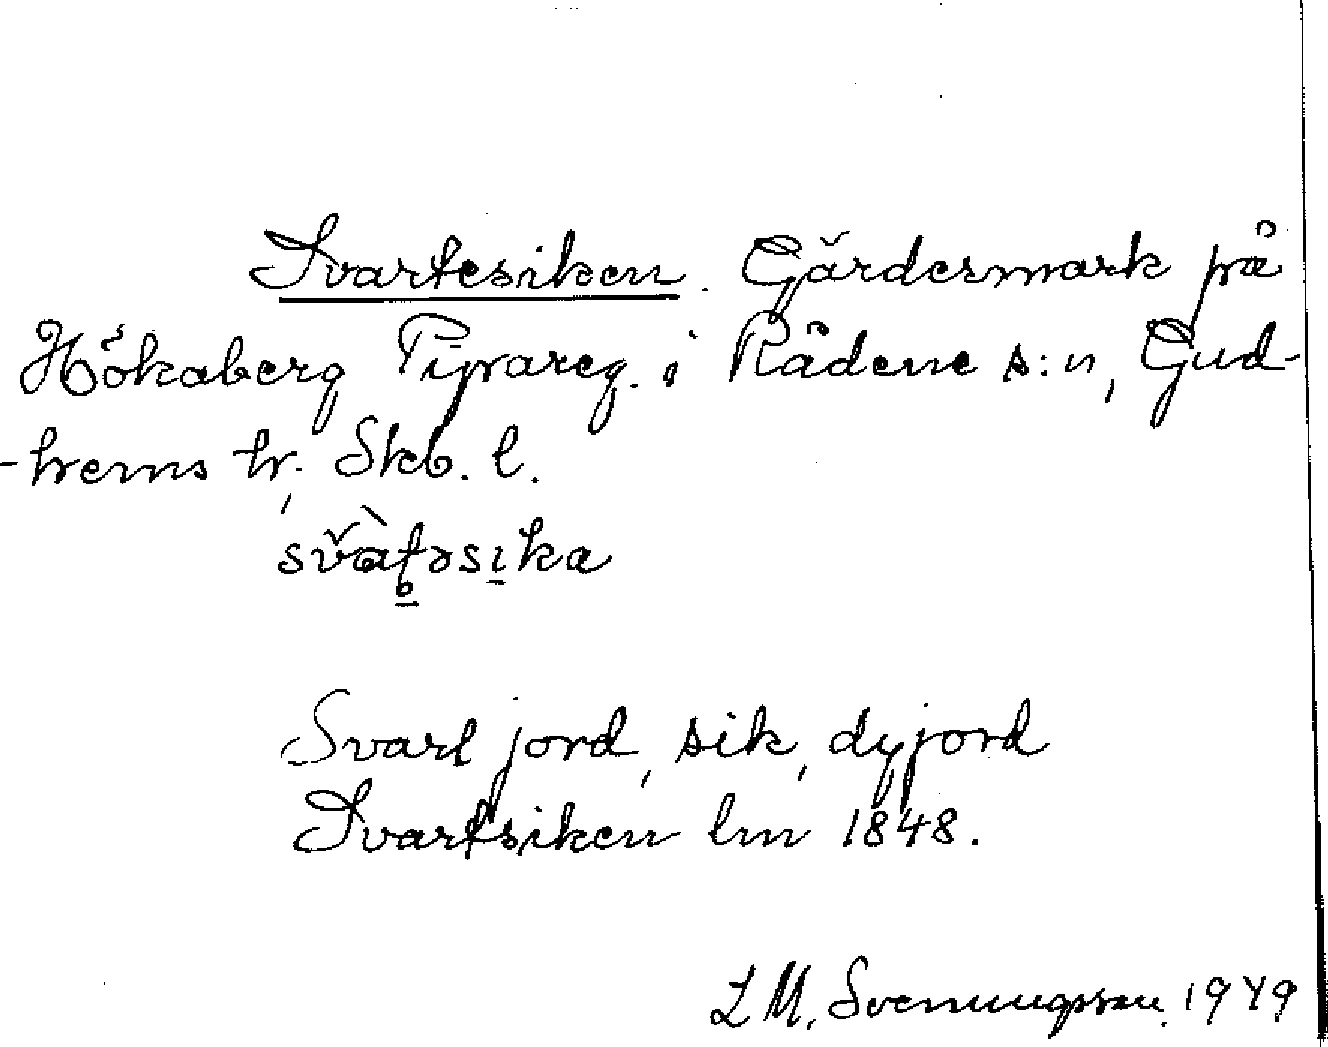 Svartesiken. Gärdesmark på
Hökaberg Pipareg. i Rådene s:n, Gud-
-hems hr, Skb. l.
svàʈəsika
Svart jord, sik, dyjord
Svartsiken lm 1848.
L M. Svenungsson. 1949